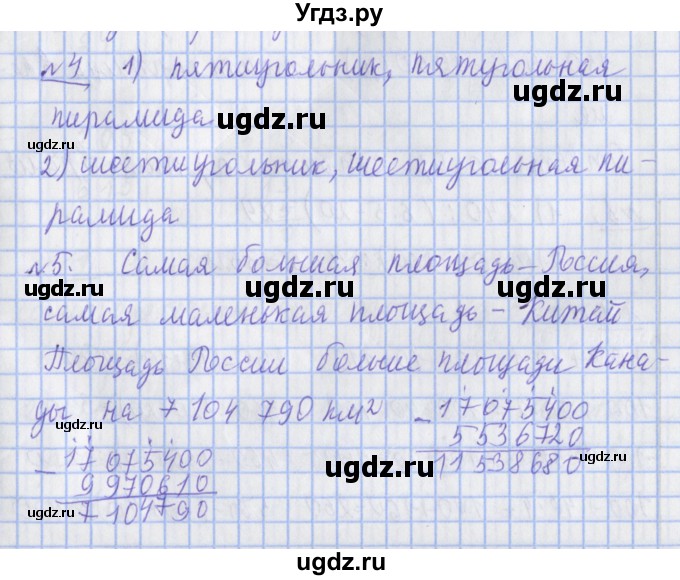 Угдз.ру
№4 1) пятиугольник, пятугольная
ugdz.ru
ugdz.ru
пирамида
ugdz.ru
ugdz.ru
2) шестиугольник, шестиугольная пи-
рамида
ugdz.ru
ugdz.ru
№5. Самая большая площадь – Россия,
ugdz.ru
ugdz.ru
самая маленькая площадь – Китай
Площадь России больше площади Кана-
ugdz.ru
ugdz.ru
ды на 7 104 790 км²
- 17075400
5536720
11538680
- 17075400
9970610
7104790
ugdz.ru
ugdz.ru
ugdz.ru
ugdz.ru
ugdz.ru